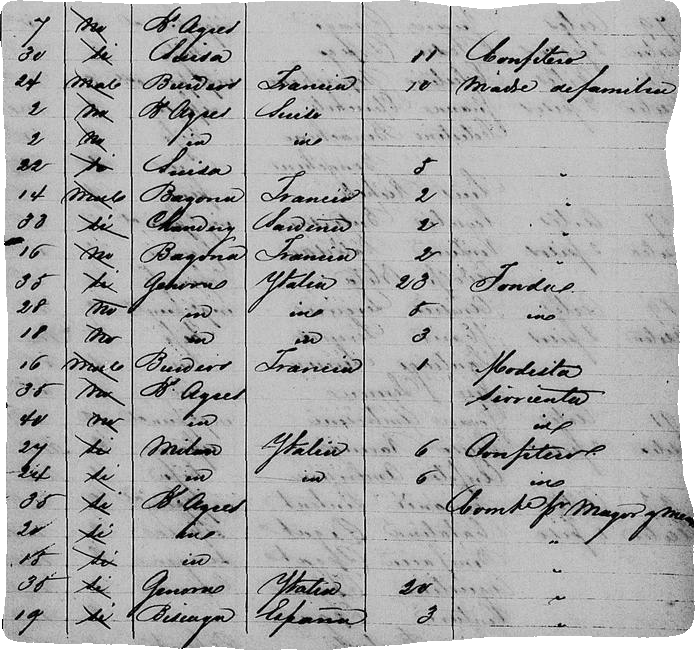 7 no Bs Ayres
30 si Suisa 11 Confitero
24 Male Burdeos Francia 10 Madre de familia
2 no Bs Ayres Suiso
2 no in in
22 si Suisa 5 "
14 Male Bayona Francia 2 "
33 si Sardenia 2 "
16 no Bayona Francia 2 "
35 si Genova Ytalia 23 Fonda
28 no in in 5 in
18 no in in 3
16 Male Burdeos Francia 1 Modista
35 no Bs Ayres Sirvienta
40 no in in
27 si Milan Ytalia 6 Confitero
24 si in in 6 in
35 si Bs Ayres Comte pr Mayor y men
20 si in "
15 si in "
35 si Genova Ytalia 20 "
19 si Biscaya España 3 "